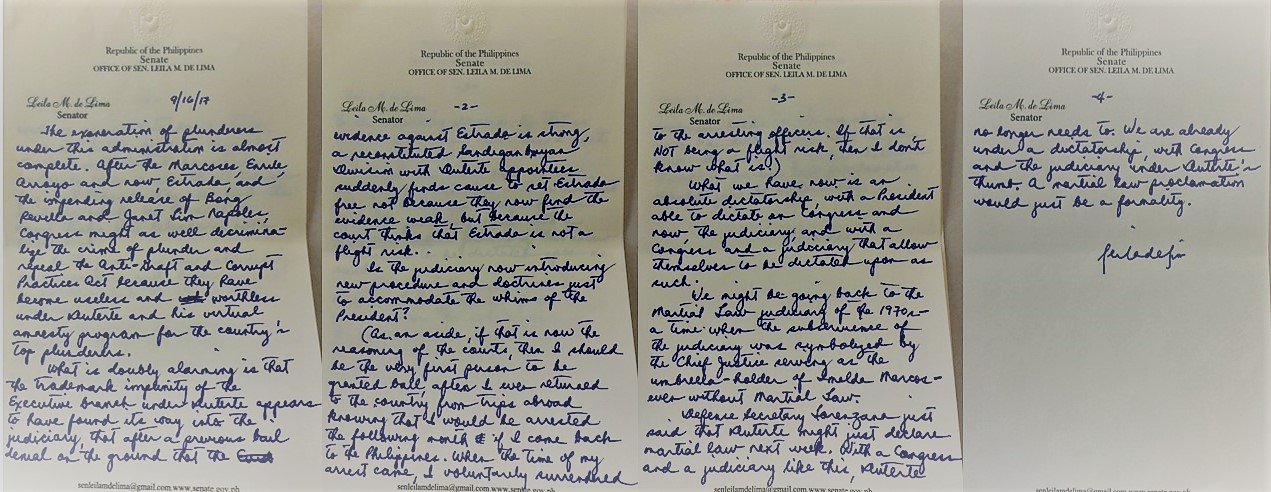 Republic of the Philippines
Senate
OFFICE OF SEN. LEILA M. DE LIMA
Leila M. de Lima
Senator
9/16/17
The exoneration of plunderers
under this administration is almost
complete. After the Marcoses, Enrile,
Arroyo and now, Estrada, and
the impending release of Bong
Revilla and Janet Lim Napoles,
Congress might as well decrimina-
lize the crime of plunder and
repeal the Anti-Graft and Corrupt
Practices Act because they have
become useless and worthless
under Duterte and his virtual
amnesty program for the country's
top plunderers.
What is doubly alarming is that
the trademark impunity of the
Executive branch under Duterte appears
to have found its way into the
judiciary, that after a previous bail
denial on the ground that the
senleilamdelima@gmail.com www.senate.gov.ph
Republic of the Philippines
Senate
OFFICE OF SEN. LEILA M. DE LIMA
Leila M. de Lima
Senator
-2-
evidence against Estrada is strong,
a reconstituted Sandiganbayan
Division with Duterte appointees
suddenly finds cause to set Estrada
free not because they now find the
evidence weak, but because the
court thinks that Estrada is not a
flight risk.
Is the judiciary now introducing
new procedure and doctrines just
to accommodate the whims of the
President?
(As an aside, if that is now the
reasoning of the courts, then I should
be the very first person to be
granted bail, after I even returned
to the country from trips abroad
knowing that I would be arrested
the following month if I come back
to the Philippines. When the time of my
arrest came, I voluntarily surrendered
senleilamdelima@gmail.com www.senate.gov.ph
Republic of the Philippines
Senate
OFFICE OF SEN. LEILA M. DE LIMA
Leila M. de Lima
Senator
-3-
to the arresting officers. If that is
NOT being a flight risk, then I don't
know what is?)
What we have now is an
absolute dictatorship, with a President
able to dictate on Congress and
now the judiciary, and with a
Congress and a judiciary that allow
themselves to be dictated upon as
such.
We might be going back to the
Martial Law judiciary of the 1970s—
a time when the subservience of
the judiciary was symbolized by
the Chief Justice serving as the
umbrella-holder of Imelda Marcos—
even without Martial Law.
Defense Secretary Lorenzana just
said that Duterte might just declare
martial law next week. With a Congress
and a judiciary like this, Duterte
senleilamdelima@gmail.com www.senate.gov.ph
Republic of the Philippines
Senate
OFFICE OF SEN. LEILA M. DE LIMA
Leila M. de Lima
Senator
-4-
no longer needs to. We are already
under a dictatorship, with Congress
and the judiciary under Duterte's
thumb. A martial law proclamation
would just be a formality.
senleilamdelima@gmail.com www.senate.gov.ph